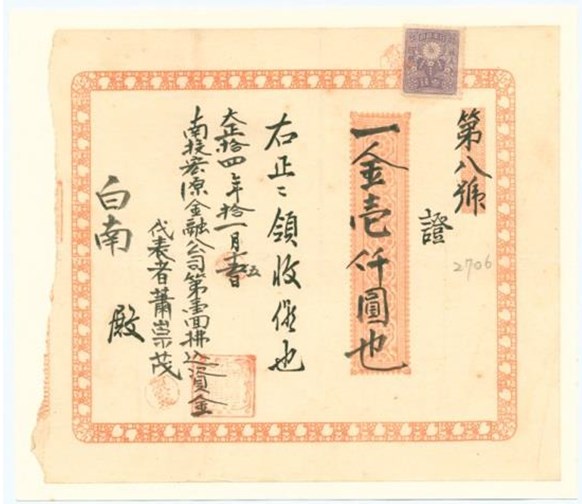 第八號
證
2706
一金壱仟圓也
右正ニ領收候也
大正拾四年拾一月
南投宏源金融公司第壹回拂込資金
代表者蕭崇茂
白南
殿